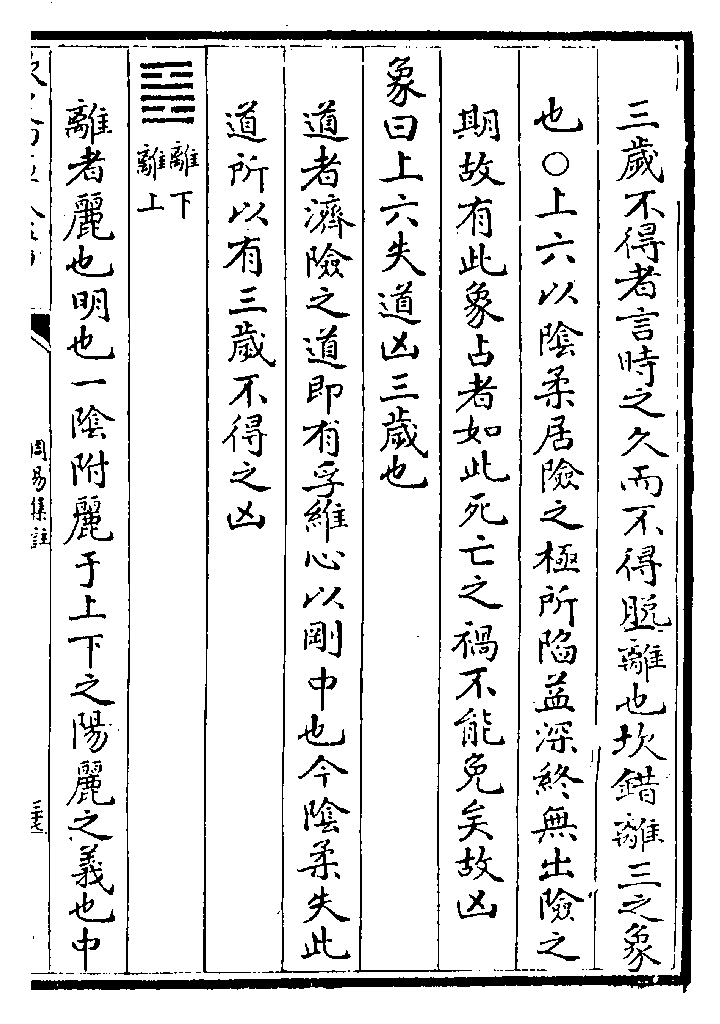 三歲不得者言時之久而不得脫離也坎錯離三之象
也○上六以陰柔居險之極所陷益深終無出險之
期故有此象占者如此死亡之禍不能免矣故凶
象曰上六失道凶三歲也
道者濟險之道即有孚維心以剛中也今陰柔失此
道所以有三歲不得之凶
䷝
離下
離上
離者麗也明也一陰附麗于上下之陽麗之義也中
周易集註